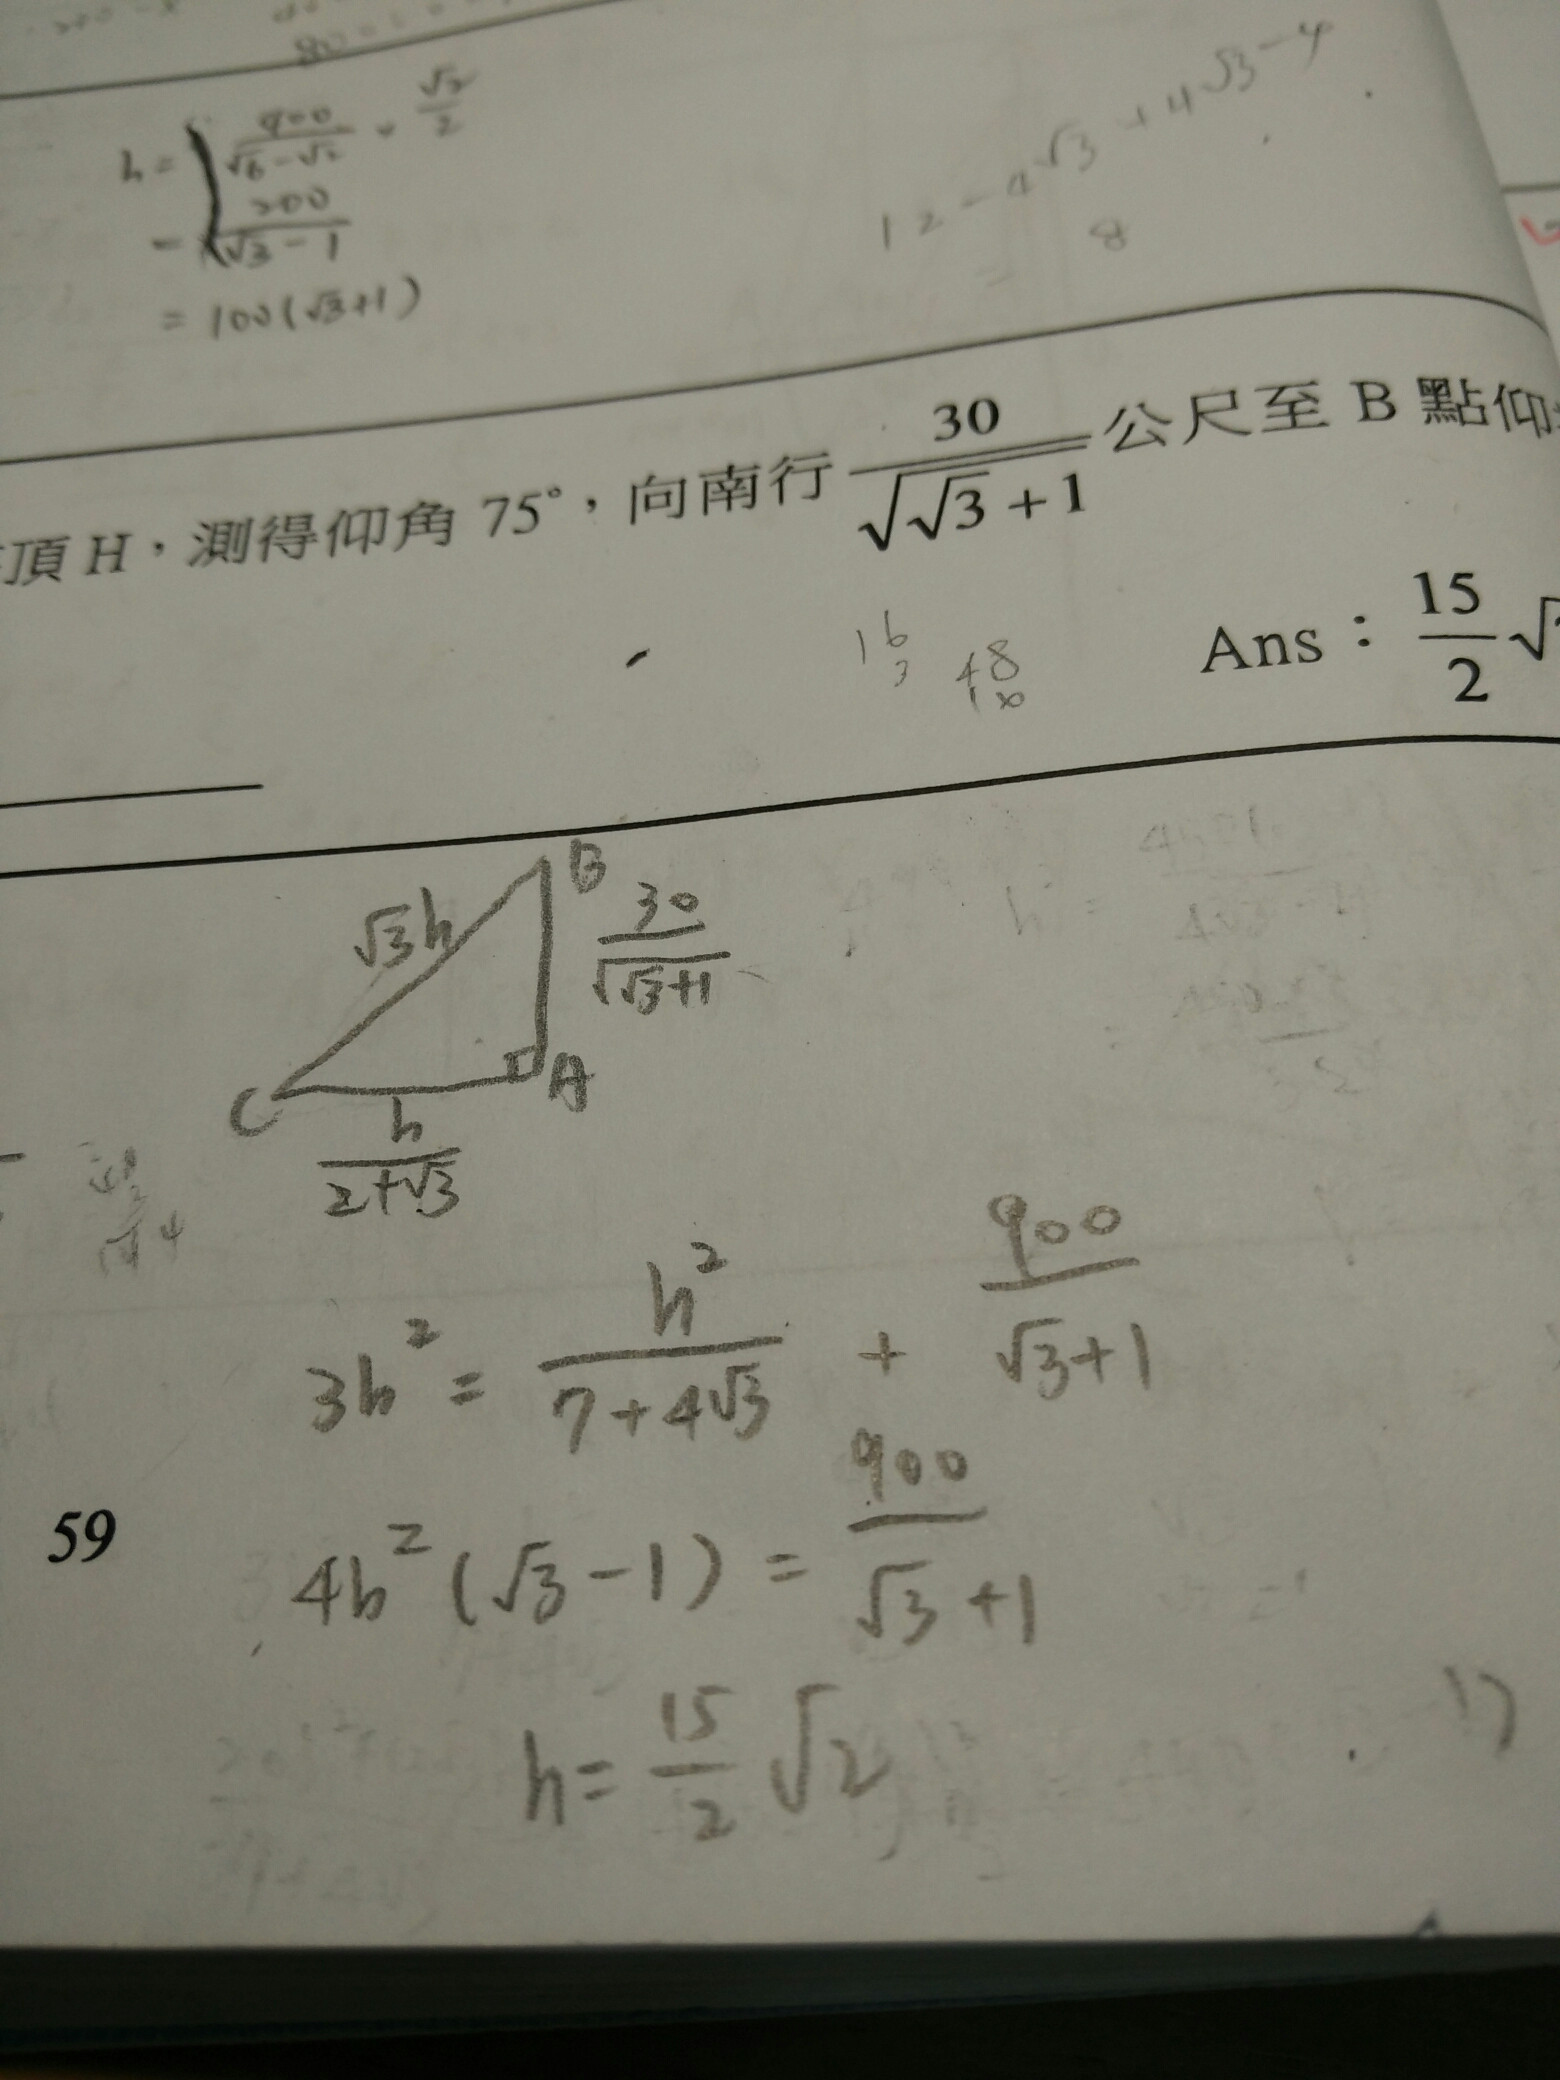 h = 900/(√6-√2) · √2/2
= 200/(√3-1)
= 100(√3+1)
12-4√3+4√3-4
8
頂 H，測得仰角 75°，向南行 30/√(√3+1) 公尺至 B 點仰
16
3
48
Ans： 15/2 √
B
√3h
30/√(√3+1)
C
A
h/(2+√3)
3h² = h²/(7+4√3) + 900/(√3+1)
59
4h²(√3-1) = 900/(√3+1)
h = 15/2 √2